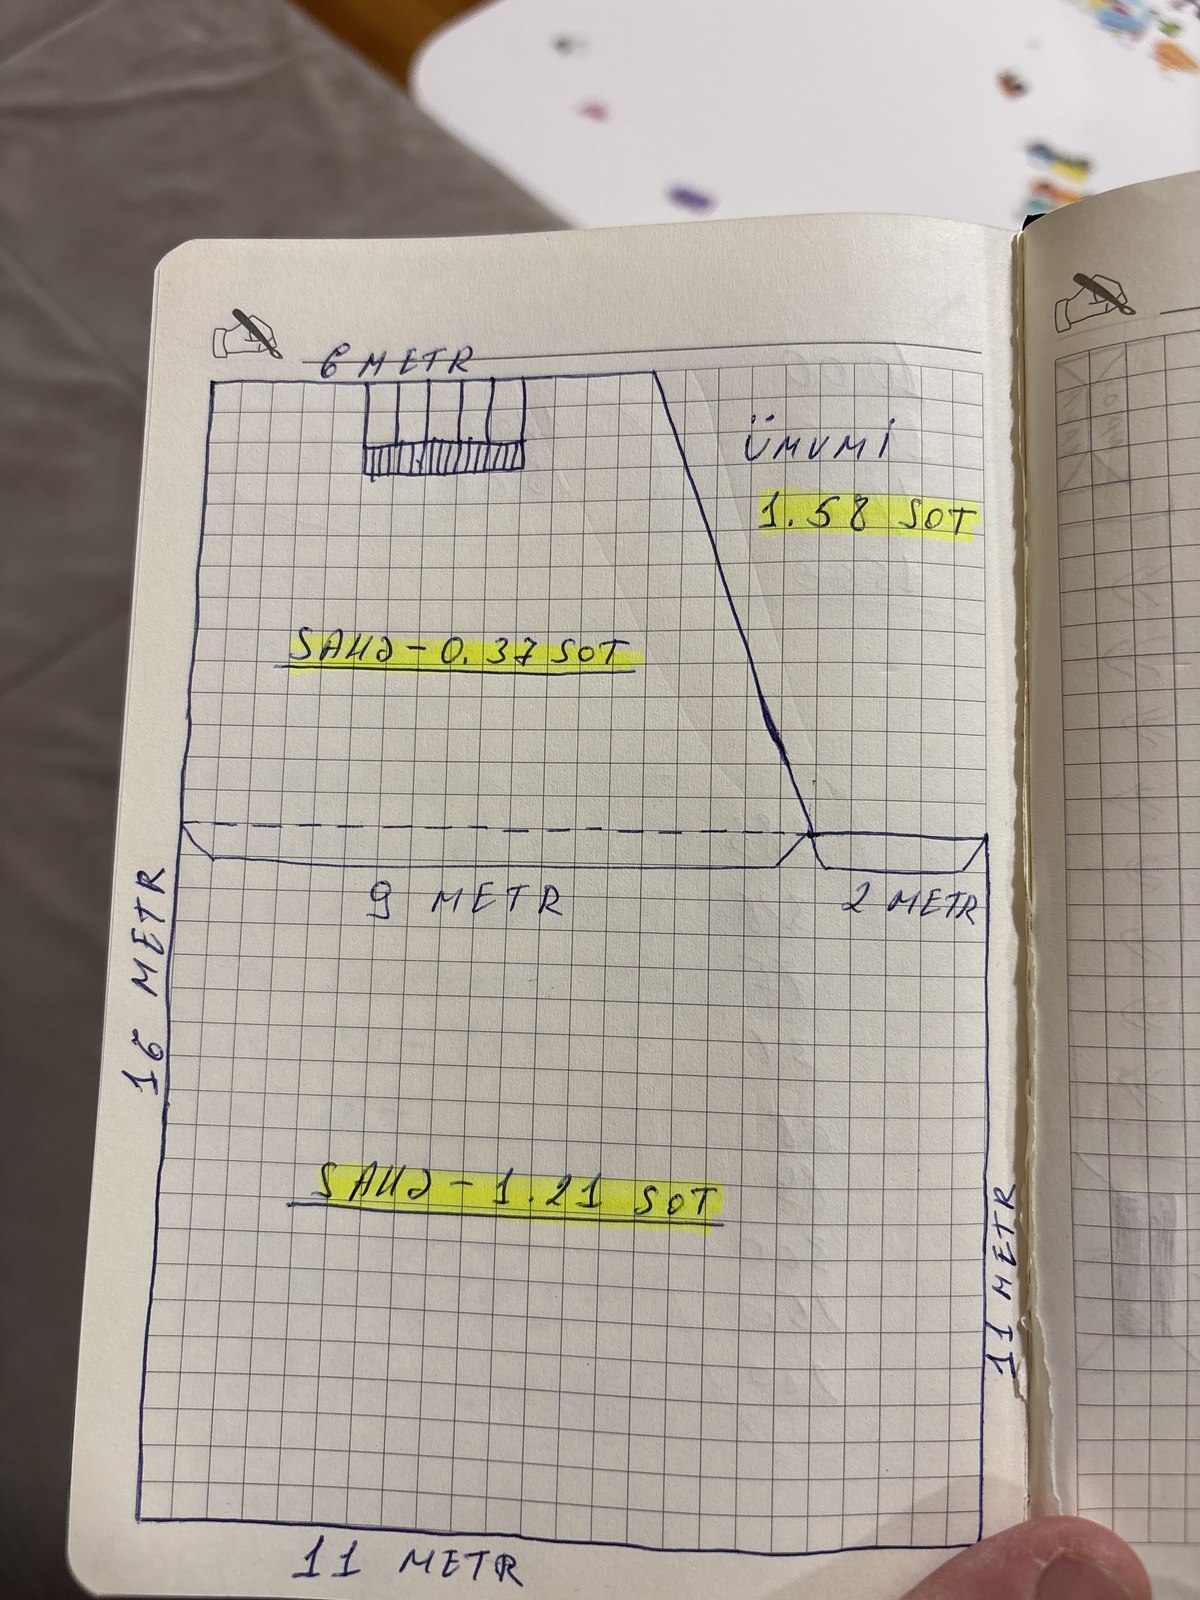 6 METR
ÜMUMİ
1.58 SOT
SAHƏ - 0.37 SOT
9 METR
2 METR
16 METR
SAHƏ - 1.21 SOT
11 METR
11 METR